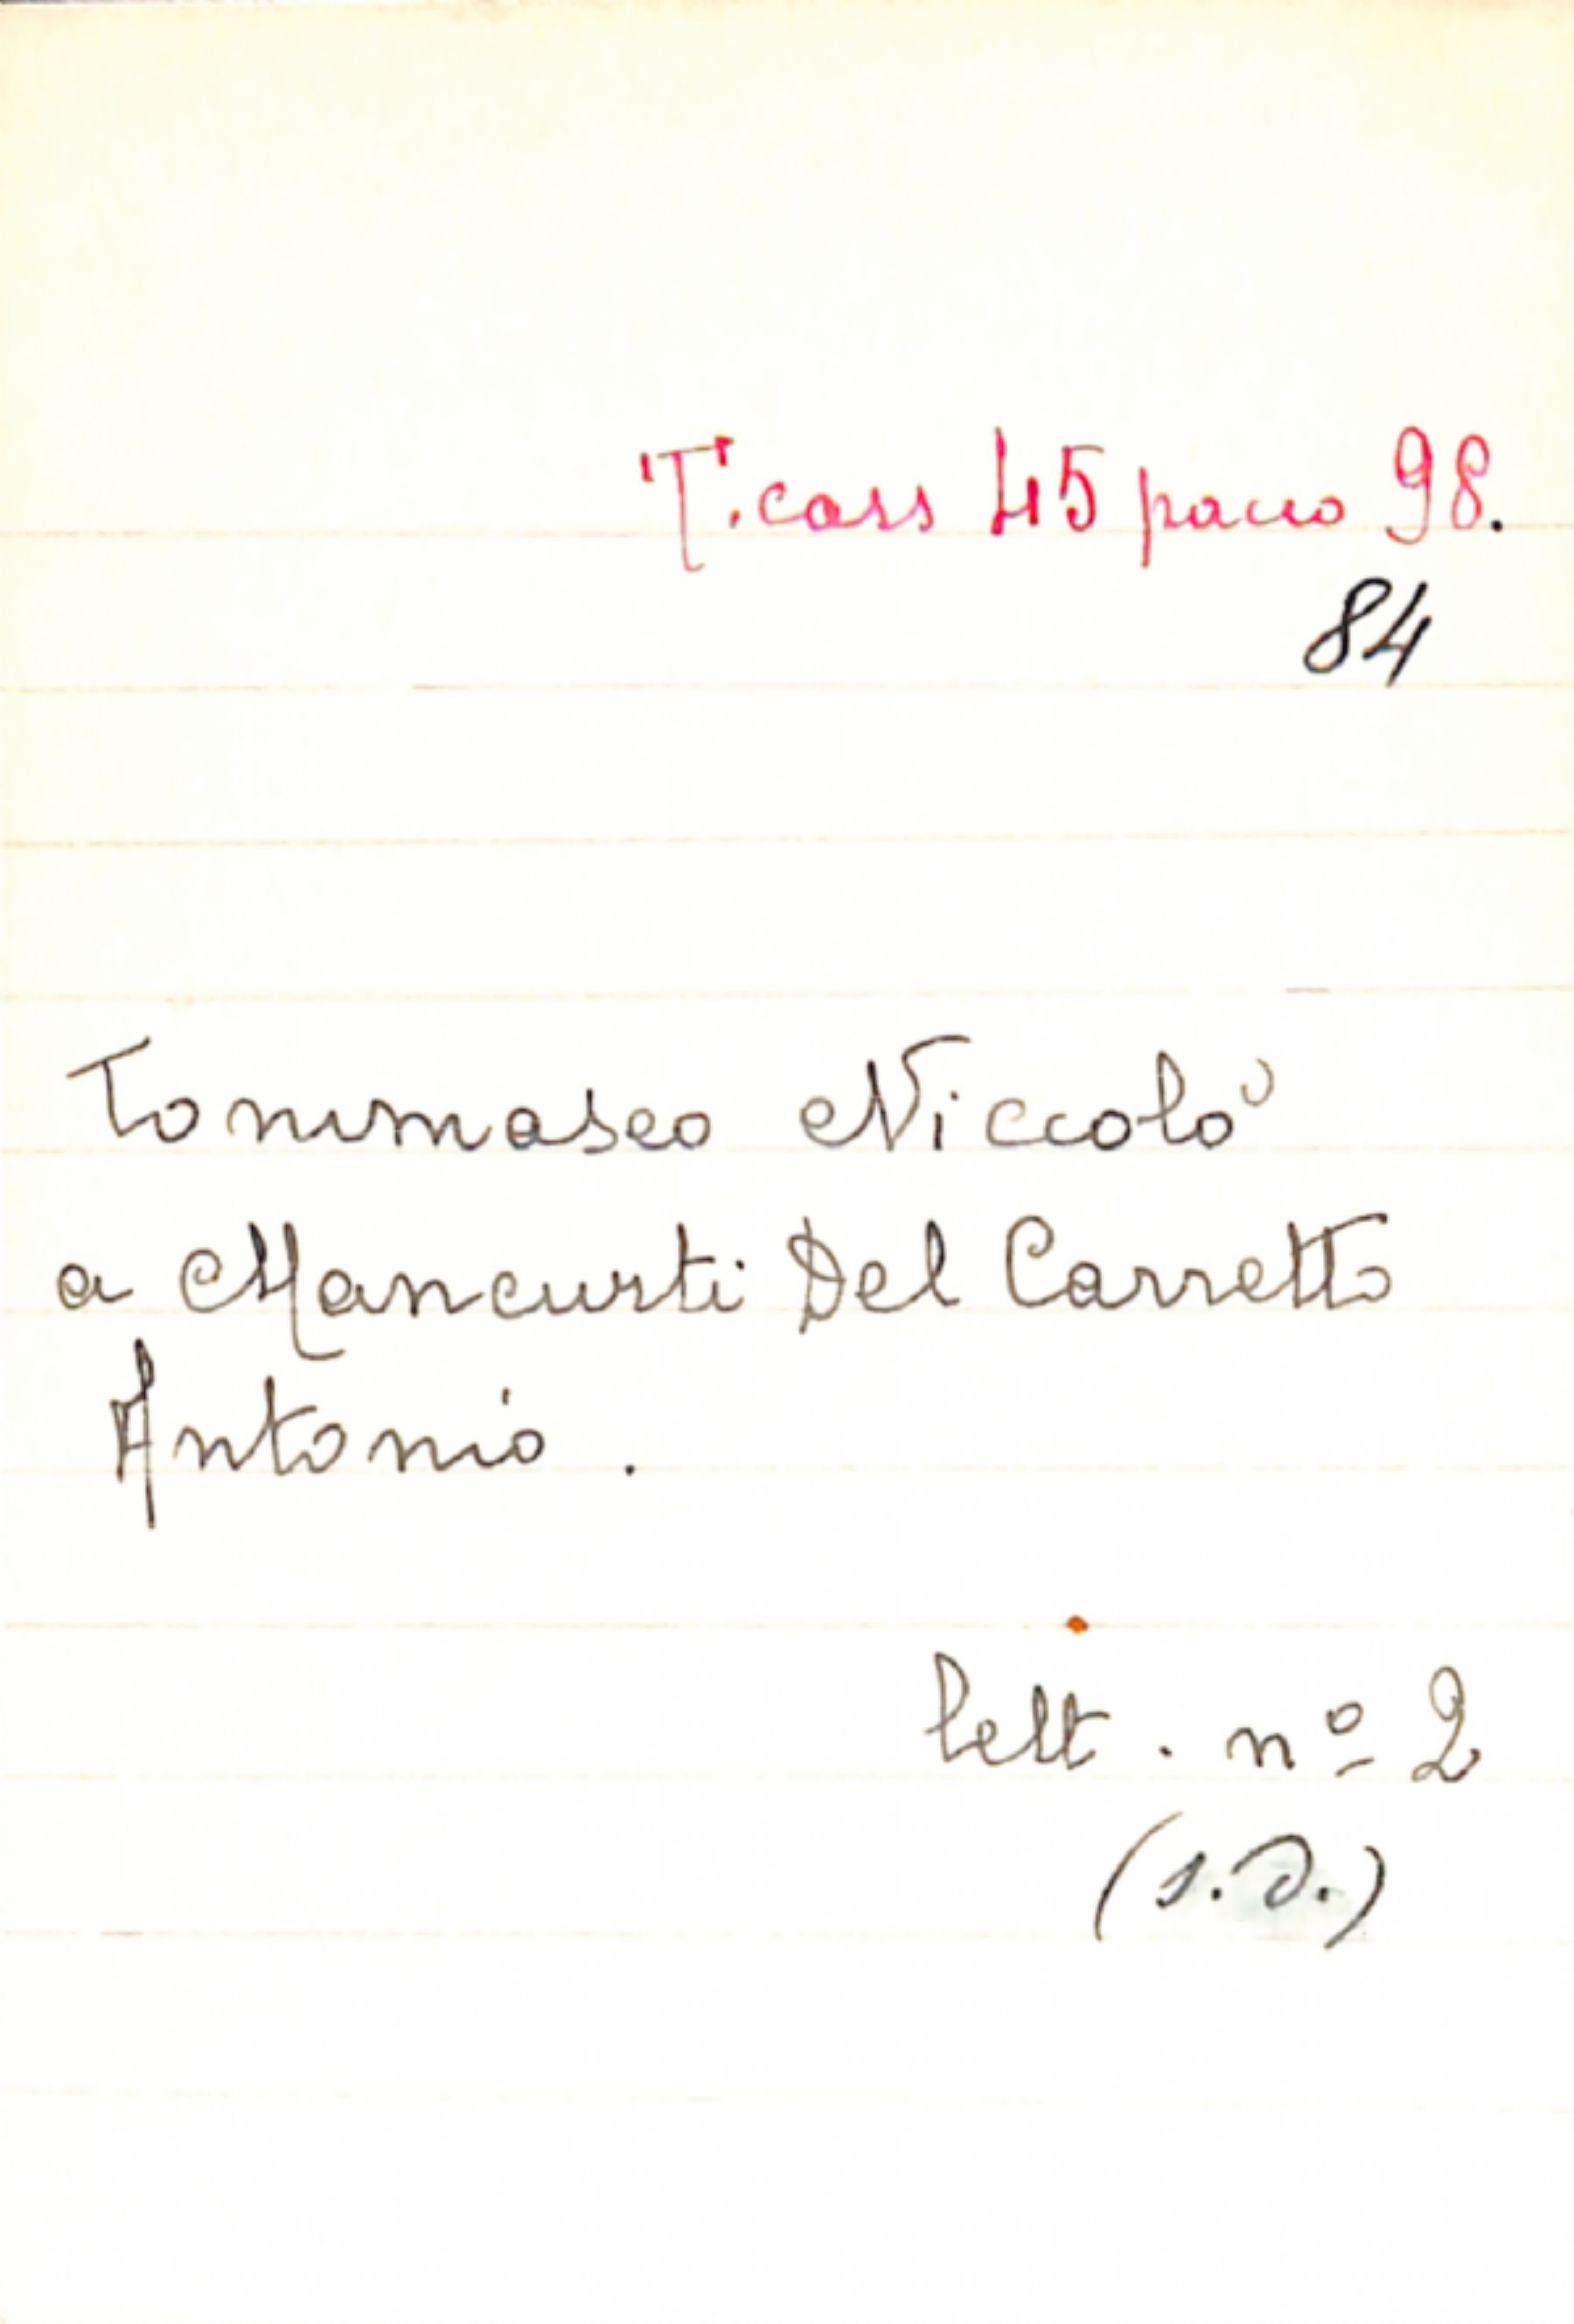 T. cass 45 pacco 98.
84
Tommaseo Niccolò
a Mancurti Del Carretto
Antonio.
lett. nº 2
(s.d.)